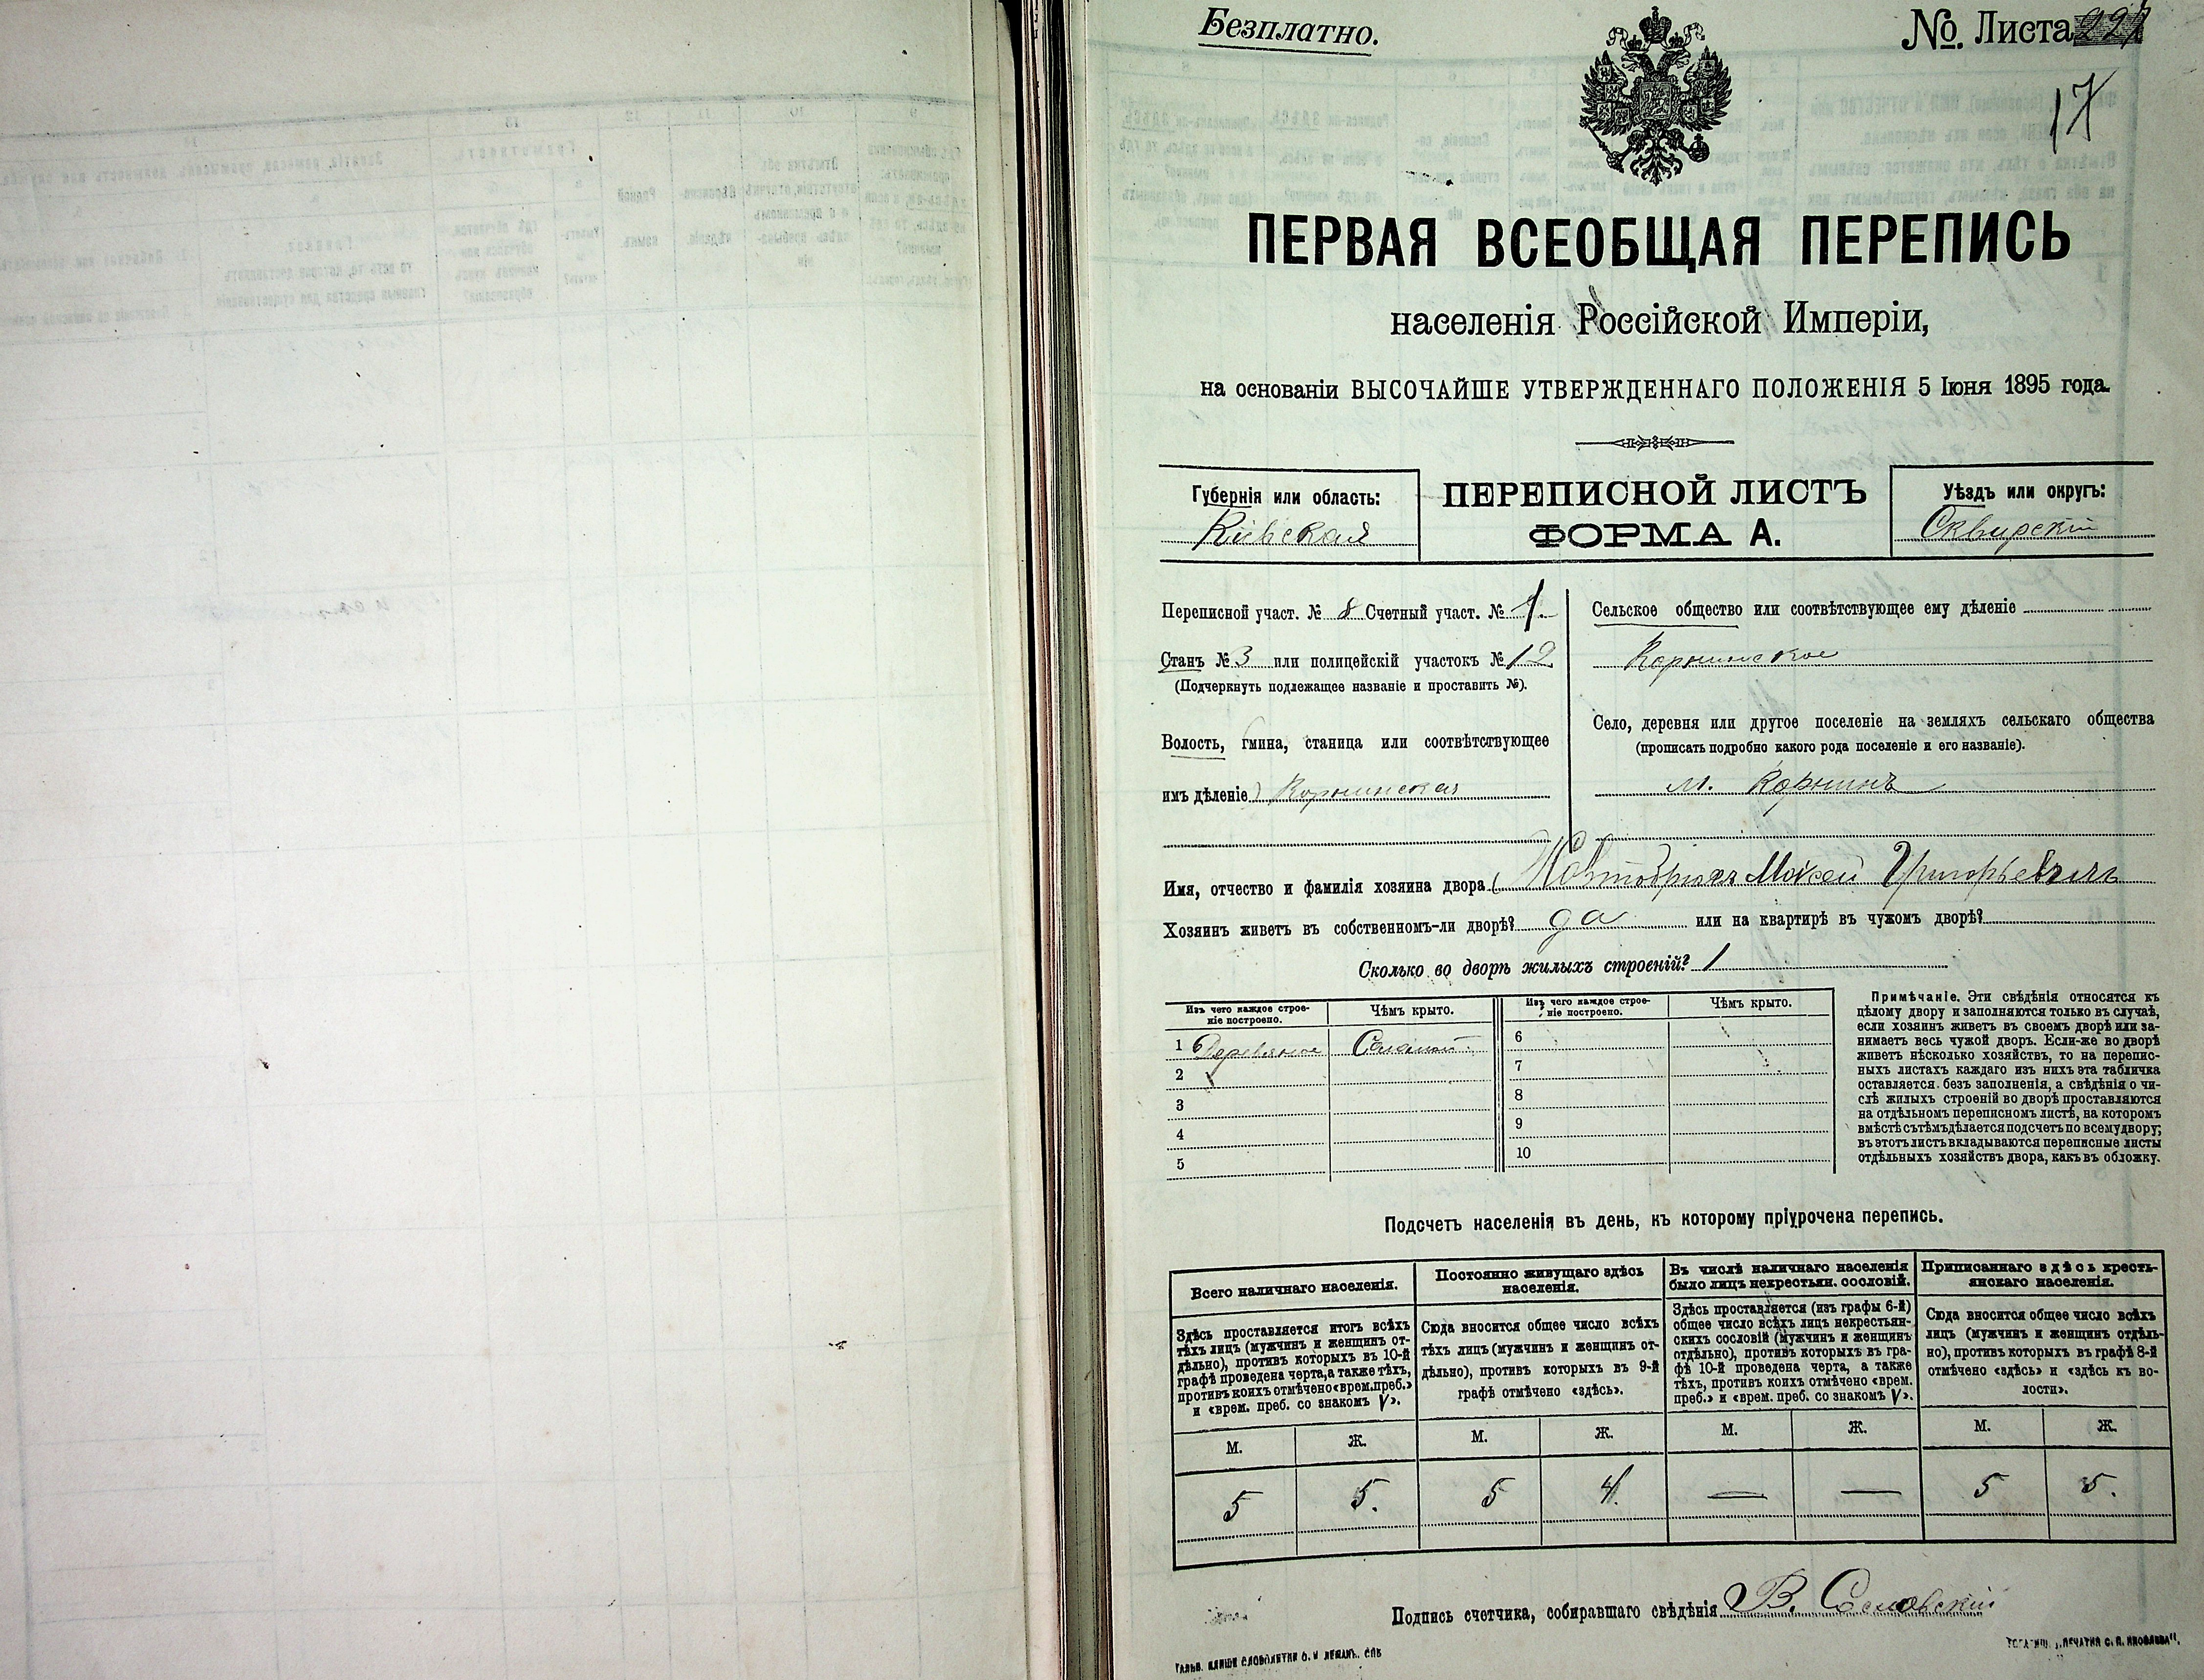 Безплатно.
№. Листа
17
ПЕРВАЯ ВСЕОБЩАЯ ПЕРЕПИСЬ
населенія Россійской Имперіи,
на основаніи ВЫСОЧАЙШЕ УТВЕРЖДЕННАГО ПОЛОЖЕНІЯ 5 Іюня 1895 года.
Губернія или область:
Кіевская
ПЕРЕПИСНОЙ ЛИСТЪ
ФОРМА А.
Уѣздъ или округъ:
Сквирскій
Переписной участ. № 8 Счетный участ. № 1.
Станъ № 3 или полицейскій участокъ № 12
(Подчеркнуть подлежащее названіе и проставить №).
Волость, гмина, станица или соотвѣтствующее
имъ дѣленіе) Корнинская
Сельское общество или соотвѣтствующее ему дѣленіе
Корнинское
Село, деревня или другое поселеніе на земляхъ сельскаго общества
(прописать подробно какого рода поселеніе и его названіе).
м. Корнинъ
Имя, отчество и фамилія хозяина двора Мойсей Григорьевичъ
Хозяинъ живетъ въ собственномъ-ли дворѣ? да или на квартирѣ въ чужомъ дворѣ?
Сколько во дворѣ жилыхъ строеній? 1
Изъ чего каждое строе-
ніе построено.
Чѣмъ крыто.
1 Деревяное Соломой
2
3
4
5
Изъ чего каждое строе-
ніе построено.
Чѣмъ крыто.
6
7
8
9
10
Примѣчаніе. Эти свѣдѣнія относятся къ
цѣлому двору и заполняются только въ случаѣ,
если хозяинъ живетъ въ своемъ дворѣ или за-
нимаетъ весь чужой дворъ. Если-же во дворѣ
живетъ нѣсколько хозяйствъ, то на перепис-
ныхъ листахъ каждаго изъ нихъ эта табличка
оставляется безъ заполненія, а свѣдѣнія о чи-
слѣ жилыхъ строеній во дворѣ проставляются
на отдѣльномъ переписномъ листѣ, на которомъ
вмѣстѣ съ тѣмъ дѣлается подсчетъ по всему двору;
въ этотъ листъ вкладываются переписные листы
отдѣльныхъ хозяйствъ двора, какъ въ обложку.
Подсчетъ населенія въ день, къ которому пріурочена перепись.
Всего наличнаго населенія.
Здѣсь проставляется итогъ всѣхъ
тѣхъ лицъ (мужчинъ и женщинъ от-
дѣльно), противъ которыхъ въ 10-й
графѣ проведена черта, а также тѣхъ,
противъ коихъ отмѣчено «врем. преб.»
и «врем. преб. со знакомъ V».
М. Ж.
5 5.
Постоянно живущаго здѣсь
населенія.
Сюда вносится общее число всѣхъ
тѣхъ лицъ (мужчинъ и женщинъ от-
дѣльно), противъ которыхъ въ 9-й
графѣ отмѣчено «здѣсь».
М. Ж.
5 4.
Въ числѣ наличнаго населенія
было лицъ некрестьян. сословій.
Здѣсь проставляется (изъ графы 6-й)
общее число всѣхъ лицъ некрестьян-
скихъ сословій (мужчинъ и женщинъ
отдѣльно), противъ которыхъ въ гра-
фѣ 10-й проведена черта, а также
тѣхъ, противъ коихъ отмѣчено «врем.
преб.» и «врем. преб. со знакомъ V».
М. Ж.
— —
Приписаннаго здѣсь кресть-
янскаго населенія.
Сюда вносится общее число всѣхъ
лицъ (мужчинъ и женщинъ отдѣль-
но), противъ которыхъ въ графѣ 8-й
отмѣчено «здѣсь» и «здѣсь къ во-
лости».
М. Ж.
5 5.
Подпись счетчика, собиравшаго свѣдѣнія В.